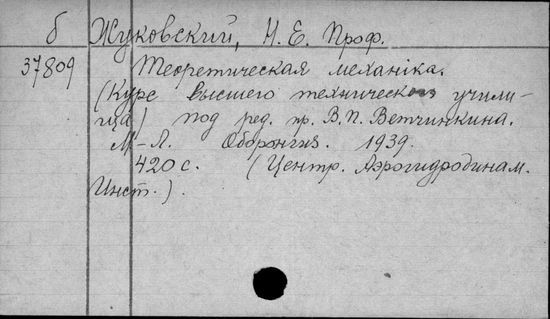 б Жуковский, Н. Е. Проф.
37809 Теоретическая механіка.
(Курс высшего технического учили-
ща) под ред. пр. В. П. Ветчинкина.
М-Л. Оборонгиз. 1939.
420 с. (Центр. Аэрогидродинам.
Инст.).